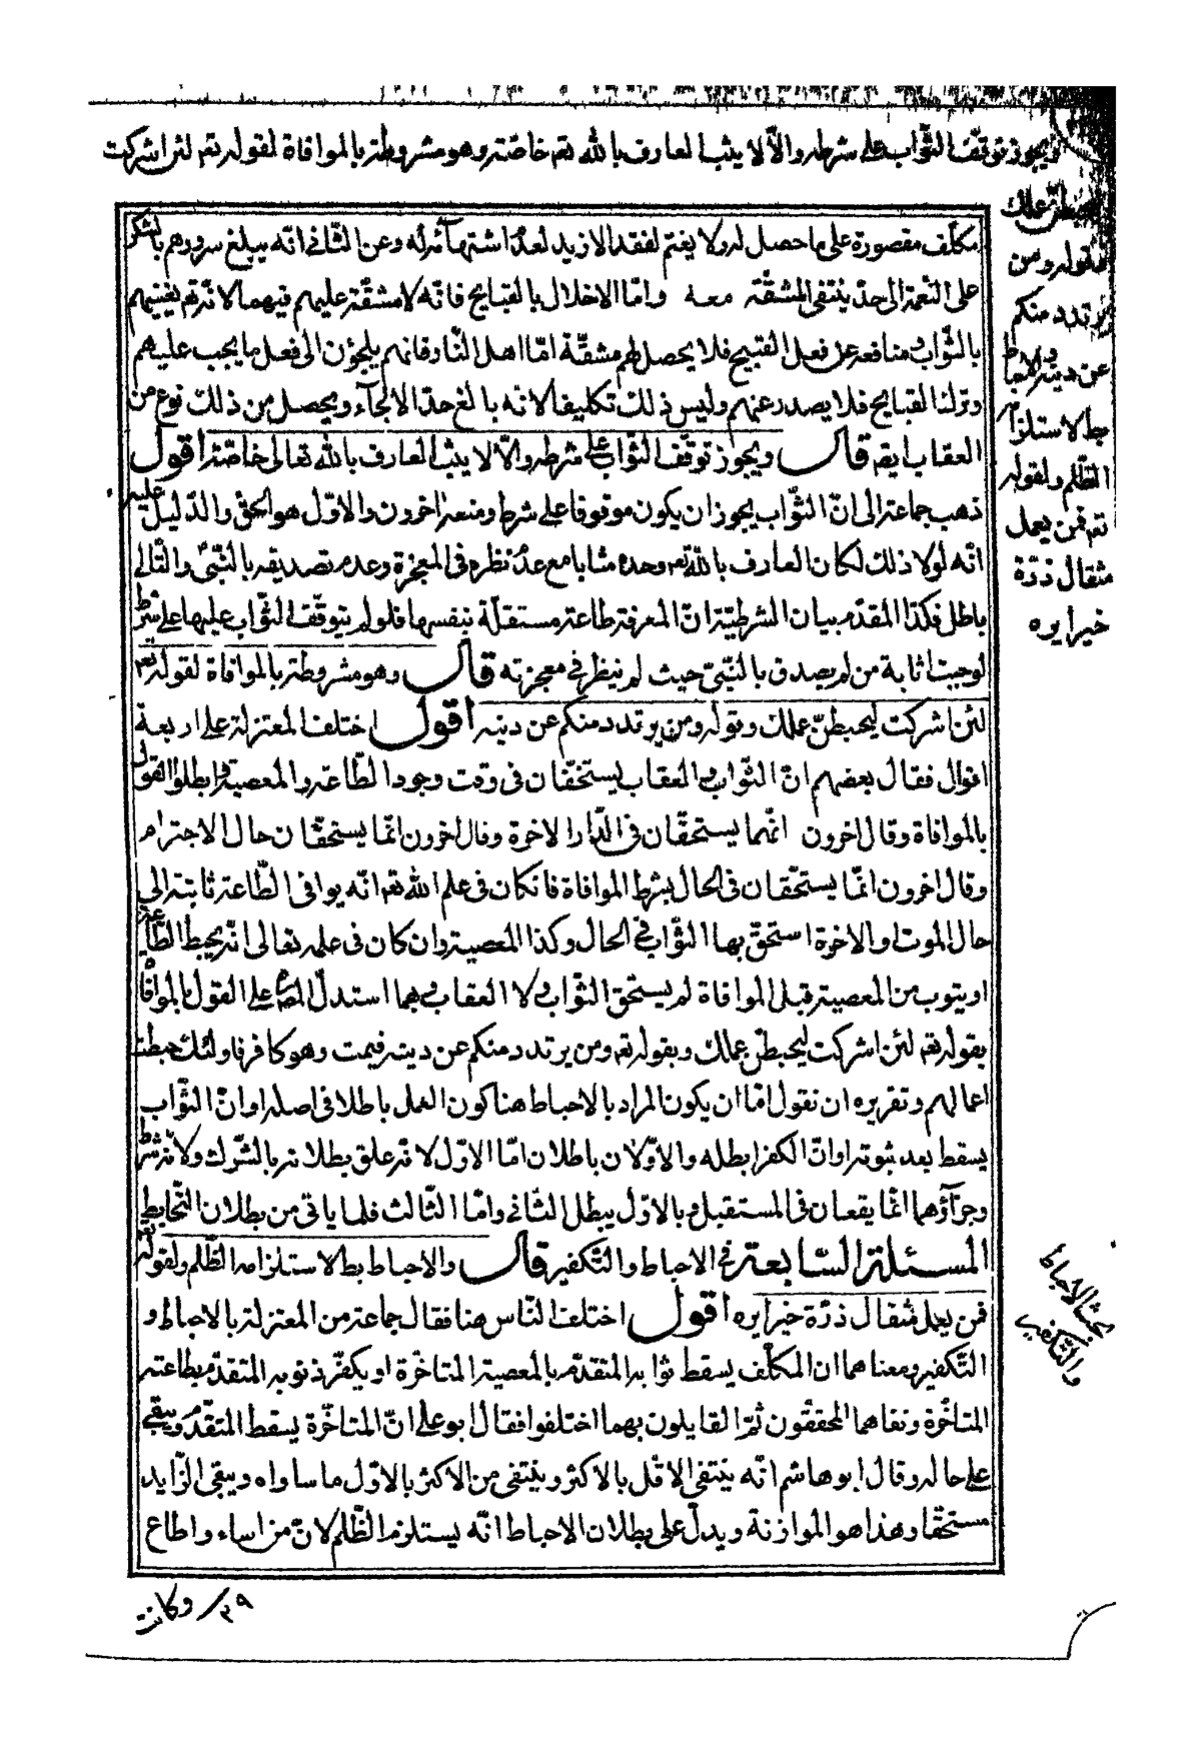 ويجوز توقف الثواب على شرط والا لا يثب العارف بالله تع خاصة وهو مشروط بالموافاة لقوله تع لئن اشركت
ليحبطن عملك
وقوله ومن
يرتدد منكم
عن دينه والاحبا
ط لاستلزام
الظلم ولقوله
تع فمن يعمل
مثقال ذرة
خيرا يره
مكلف مقصورة على ما حصل له ولا يغتم لفقد الازيد لعدم اشتهائه له وعن الثانى انه يبلغ سرورهم بالشكر
على النعمة الى حد ينتفى المشقة معه واما الاخلال بالقبايح فانه لا مشقة عليهم فيها لانه تع يغنيهم
بالثواب ومنافعه عن فعل القبيح فلا يحصل لهم مشقة اما اهل النار فانهم يلجؤن الى فعل ما يجب عليهم
وترك القبايح فلا يصدر عنهم وليس ذلك تكليفا لانه بالغ حد الالجآء ويحصل من ذلك نوع من
العقاب ايضا قال ويجوز توقف الثواب على شرط والا لا يثب العارف بالله تعالى خاصة اقول
ذهب جماعة الى ان الثواب يجوز ان يكون موقوفا على شرط ومنعه اخرون والاول هو الحق والدليل عليه
انه لولا ذلك لكان العارف بالله تع وحده مثابا مع عدم نظره فى المعجزة وعدم تصديقه بالنبى والتالى
باطل فكذا المقدم بيان الشرطية ان المعرفة طاعة مستقلة بنفسها فلو لم يتوقف الثواب عليها على شرط
لوجب اثابة من لم يصدق بالنبى حيث لم ينظر فى معجزته قال وهو مشروط بالموافاة لقوله تع
لئن اشركت ليحبطن عملك وقوله ومن يرتدد منكم عن دينه اقول اختلف المعتزلة على اربعة
اقوال فقال بعضهم ان الثواب والعقاب يستحقان فى وقت وجود الطاعة والمعصية وابطلوا القول
بالموافاة وقال اخرون انهما يستحقان فى الدار الاخرة وقال اخرون انما يستحقان حال الاخترام
وقال اخرون انما يستحقان فى الحال بشرط الموافاة فان كان فى علم الله تع انه يوافى الطاعة ثابتة الى
حال الموت او الاخرة استحق بها الثواب فى الحال وكذا المعصية وان كان فى علمه تعالى انه يحبط الطاعة
او يتوب من المعصية قبل الموافاة لم يستحق الثواب ولا العقاب بهما استدل المص ره على القول بالموافاة
بقوله تع لئن اشركت ليحبطن عملك وبقوله تع ومن يرتدد منكم عن دينه فيمت وهو كافر فاولئك حبطت
اعمالهم وتقريره ان نقول اما ان يكون المراد بالاحباط هنا كون العمل باطلا فى اصله او ان الثواب
يسقط بعد ثبوته او ان الكفر ابطله والاولان باطلان اما الاول لانه علق بطلانه بالشرك ولانه شرط
وجزآؤهما انما يقعان فى المستقبل وبالاول يبطل الثانى واما الثالث فلما ياتى من بطلان التحابط
المسئلة السابعة فى الاحباط والتكفير قال والاحباط بط لاستلزامه الظلم ولقوله تع
فمن يعمل مثقال ذرة خيرا يره اقول اختلف الناس هنا فقال جماعة من المعتزلة بالاحباط و
التكفير ومعناهما ان المكلف يسقط ثوابه المتقدم بالمعصية المتاخرة او يكفر ذنوبه المتقدم بطاعته
المتاخرة ونفاهما المحققون ثم القايلون بهما اختلفوا فقال ابو على ان المتاخرة يسقط المتقدم ويبقى
على حاله وقال ابو هاشم انه ينتفى الاقل بالاكثر وينتفى من الاكثر بالاول ما ساواه ويبقى الزايد
مستحقا وهذا هو الموازنة ويدل على بطلان الاحباط انه يستلزم الظلم لان من اساء واطاع
بحث الاحباط
والتكفير
وكانت
٣٩